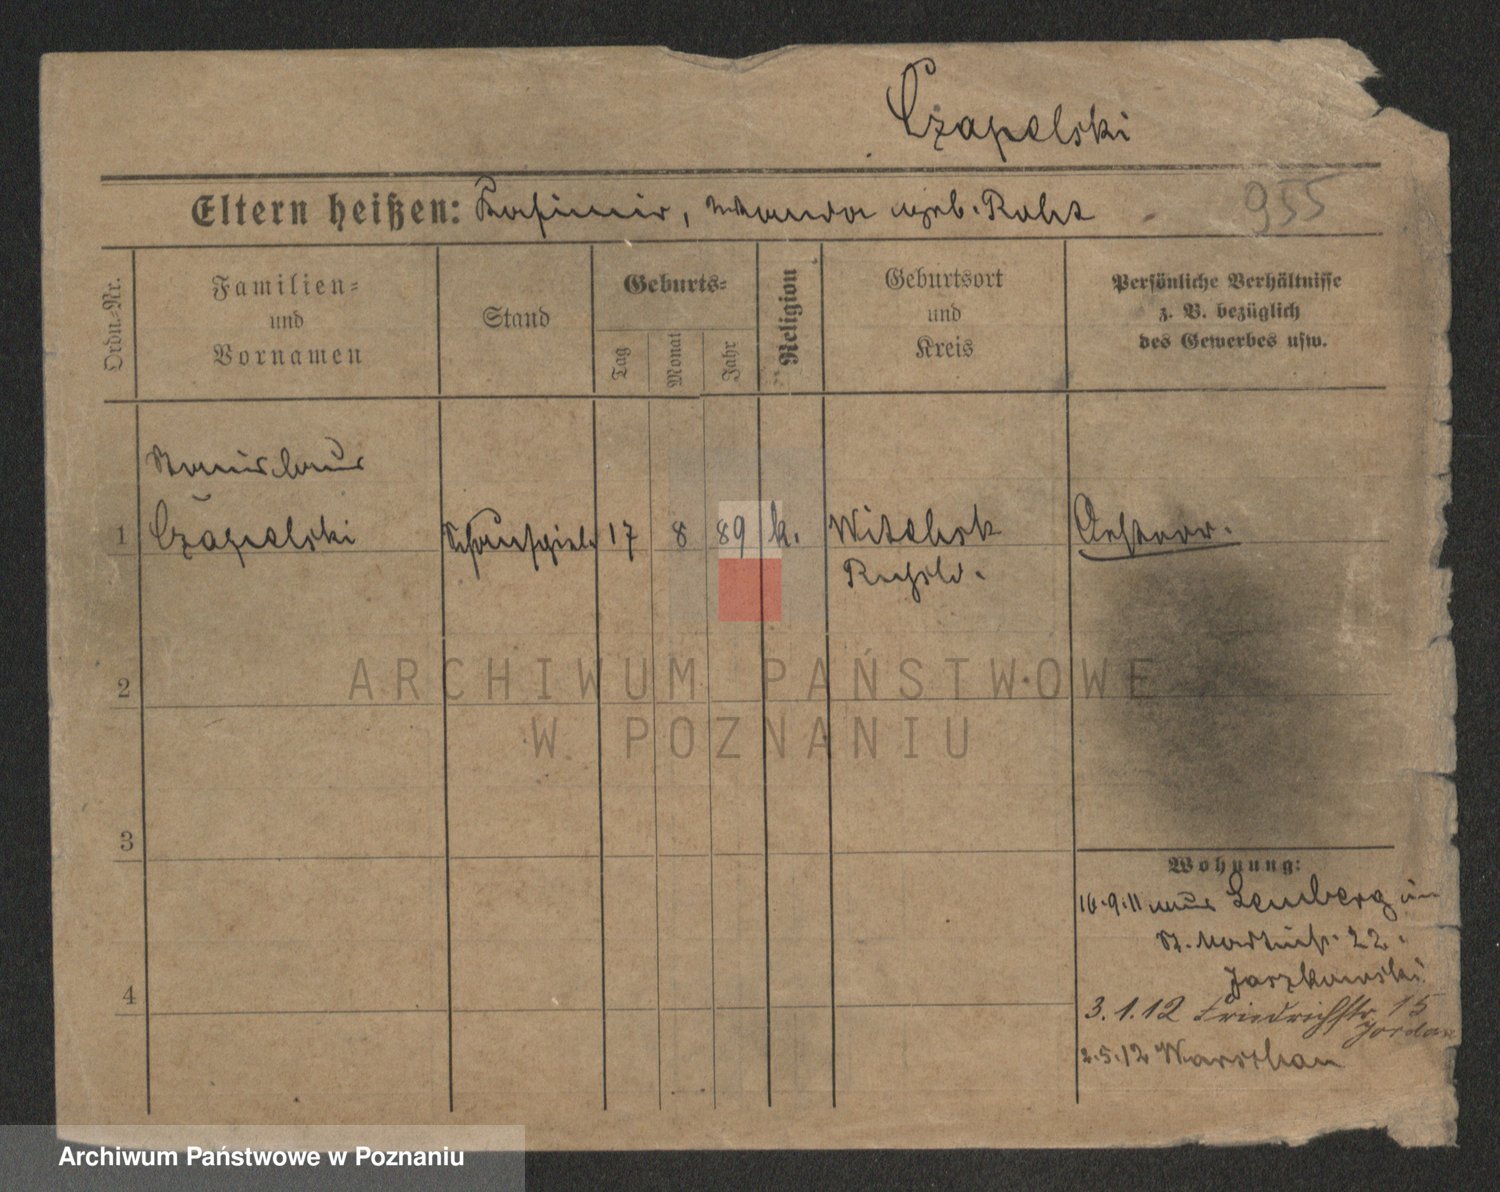 Czapelski
Eltern heißen: Kasimir, Wanda geb. Raht
955
Ordn.-Nr.
Familien-
und
Vornamen
Stand
Geburts-
Tag
Monat
Jahr
Religion
Geburtsort
und
Kreis
Persönliche Verhältnisse
z. B. bezüglich
des Gewerbes usw.
Stanislaus
1 Czapelski Schauspiel. 17 8 89 k. Witebsk
Russld.
2
3
4
Wohnung:
16.9.11 aus Lemberg in
St. Martinstr. 22.
Jaszkowski
3.1.12 Friedrichstr. 15
Jordan
2.5.12 Warschau
ARCHIWUM PAŃSTWOWE
W POZNANIU
Archiwum Państwowe w Poznaniu